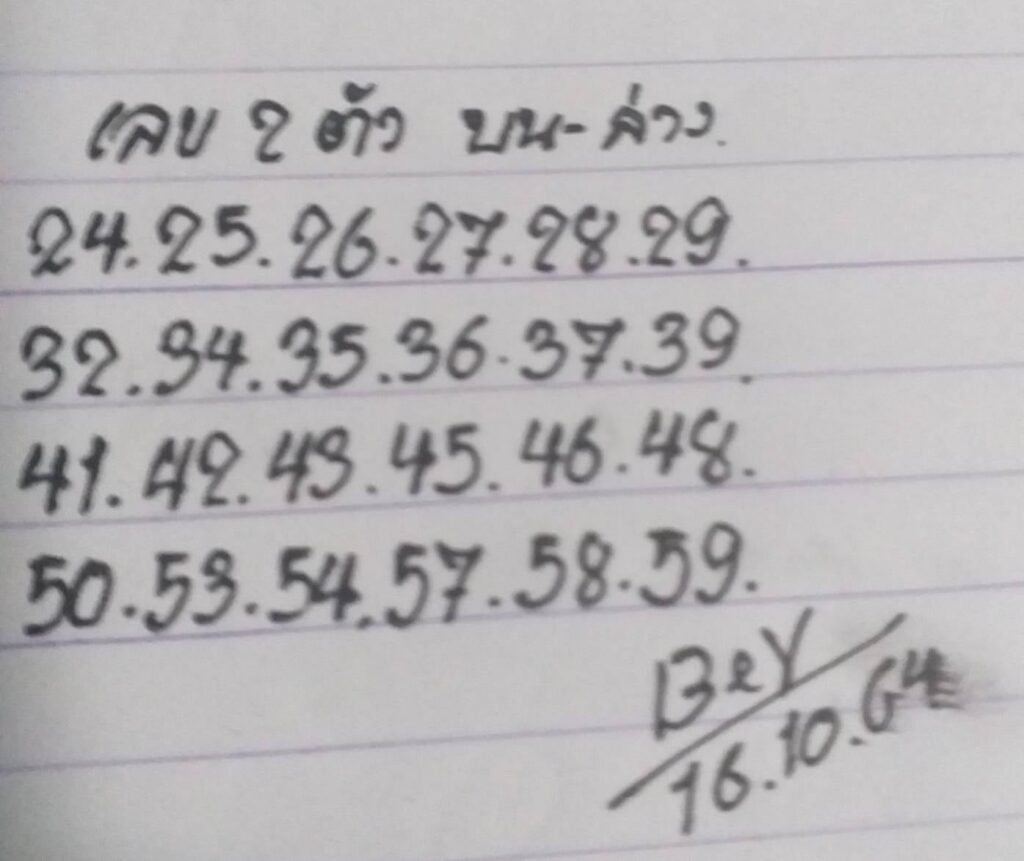 เลข 2 ตัว บน-ล่าง.
24.25.26.27.28.29.
32.34.35.36.37.39.
41.42.43.45.46.48.
50.53.54.57.58.59.
BeY
16.10.64